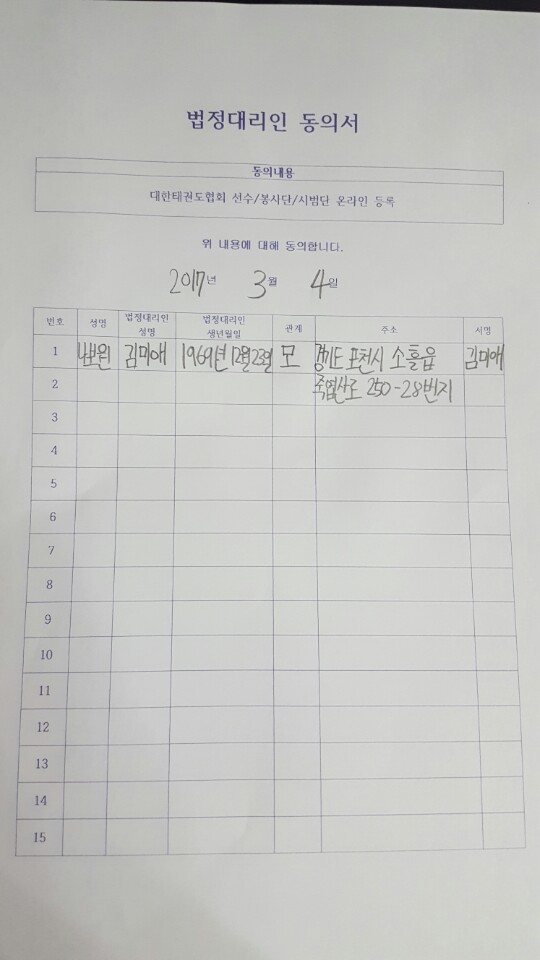 법정대리인 동의서
동의내용
대한태권도협회 선수/봉사단/시범단 온라인 등록
위 내용에 대해 동의합니다.
2017년 3월 4일
번호 성명 법정대리인 성명 법정대리인 생년월일 관계 주소 서명
1 나보원 김미애 1969년 12월 23일 모 경기도 포천시 소흘읍 김미애
2 죽엽산로 250-28번지
3
4
5
6
7
8
9
10
11
12
13
14
15